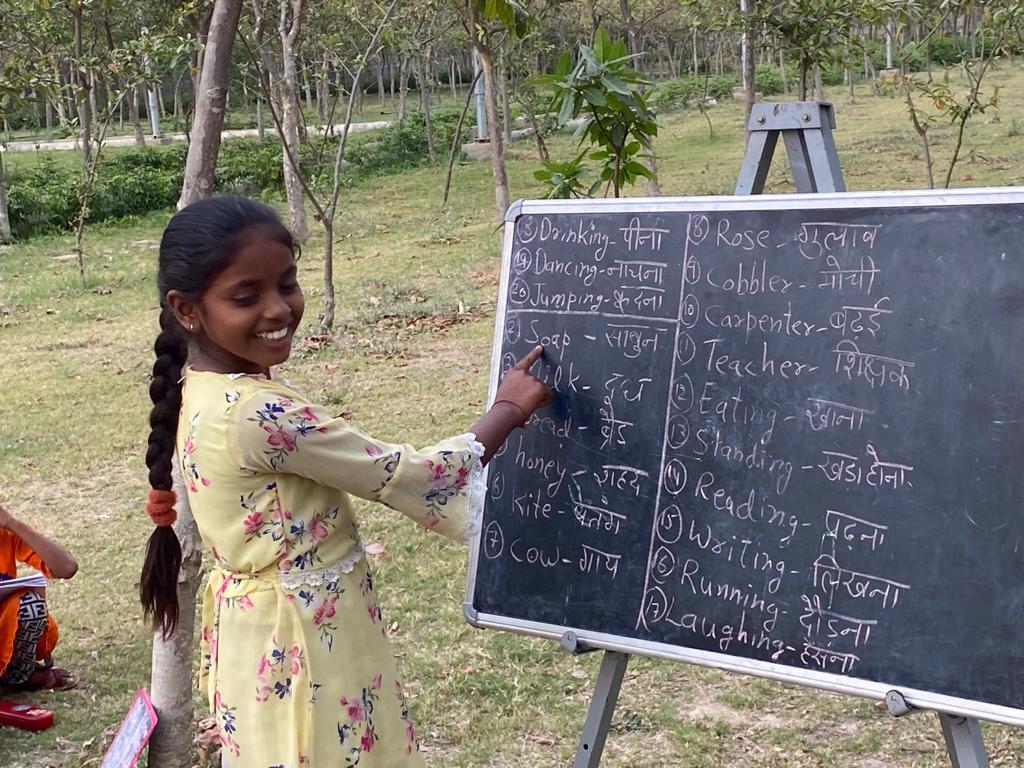 ⑱ Drinking - पीना
⑲ Dancing - नाचना
⑳ Jumping - कूदना
② Soap - साबुन
lk - दूध
read - ब्रेड
honey - शहद
⑥ Kite - पतंग
⑦ Cow - गाय
⑧ Rose - गुलाब
⑨ Cobbler - मोची
⑩ Carpenter - बढ़ई
⑪ Teacher - शिक्षक
⑫ Eating - खाना
⑬ Standing - खड़ा होना.
⑭ Reading - पढ़ना
⑮ Writing - लिखना
⑯ Running - दौड़ना
⑰ Laughing - हँसना